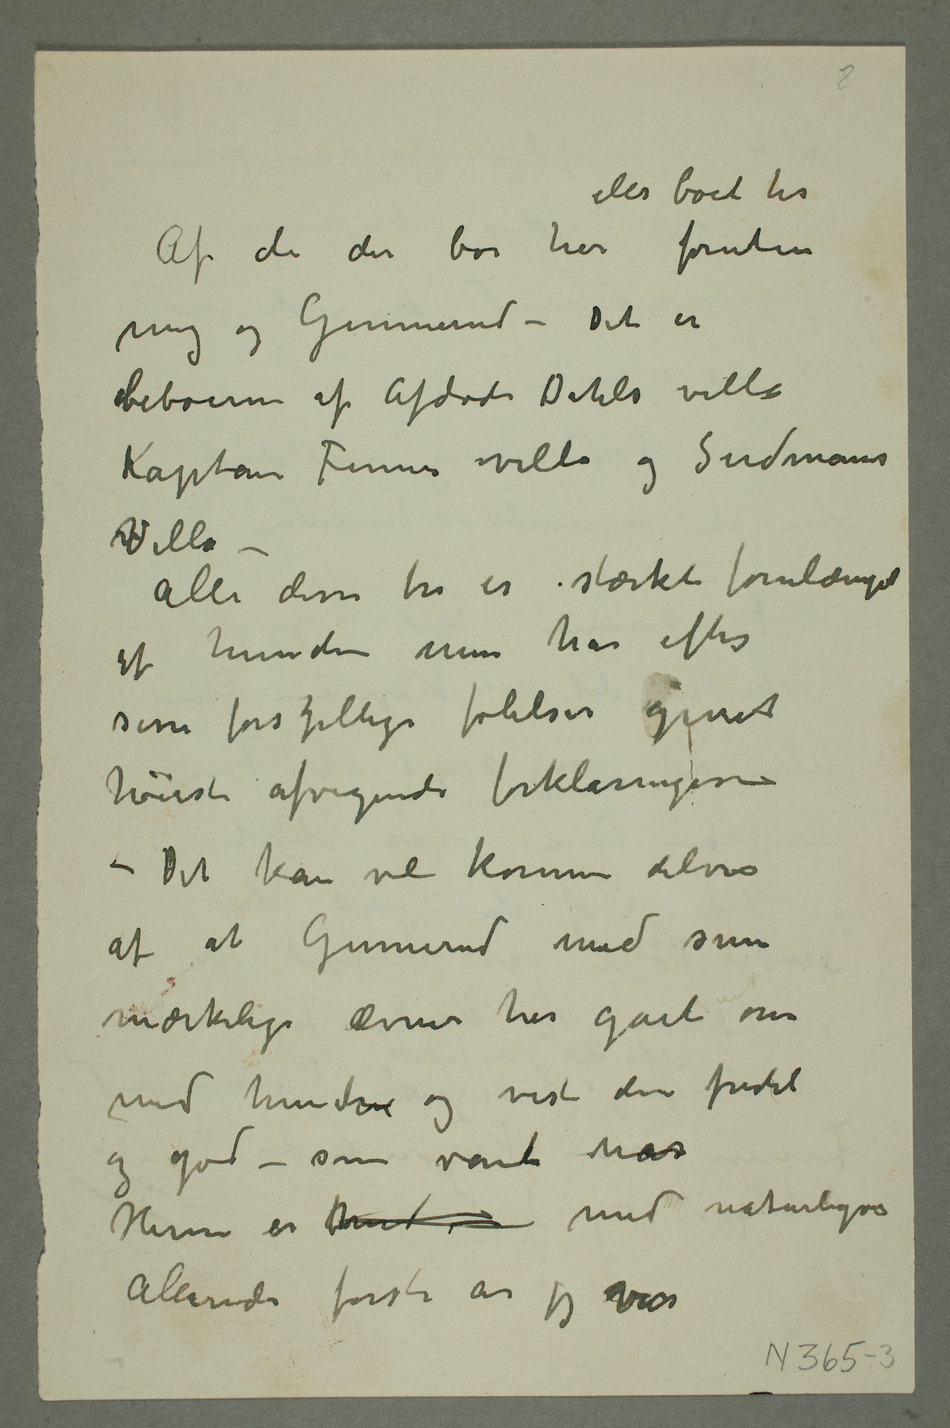 8
eller boet her
Af de der bor her foruten
mig og Gunnerud – Det er
beboerne af Afdøde Dahls villa
Kaptain Finnes villa og Sudmanns
Villa –
Alle disse tre er stærkt fornulæmpet
af hunden men har efter
sine forskjellige følelser givet
høist afvigende forklaringer
– Det kan vel komme delvis
af at Gunnerud med sine
mærkelige ævner har gået om
med hunden og vist den fredel
og god – som vant har
Herne er med naturligvis
Allerede første år jeg var
N 365-3